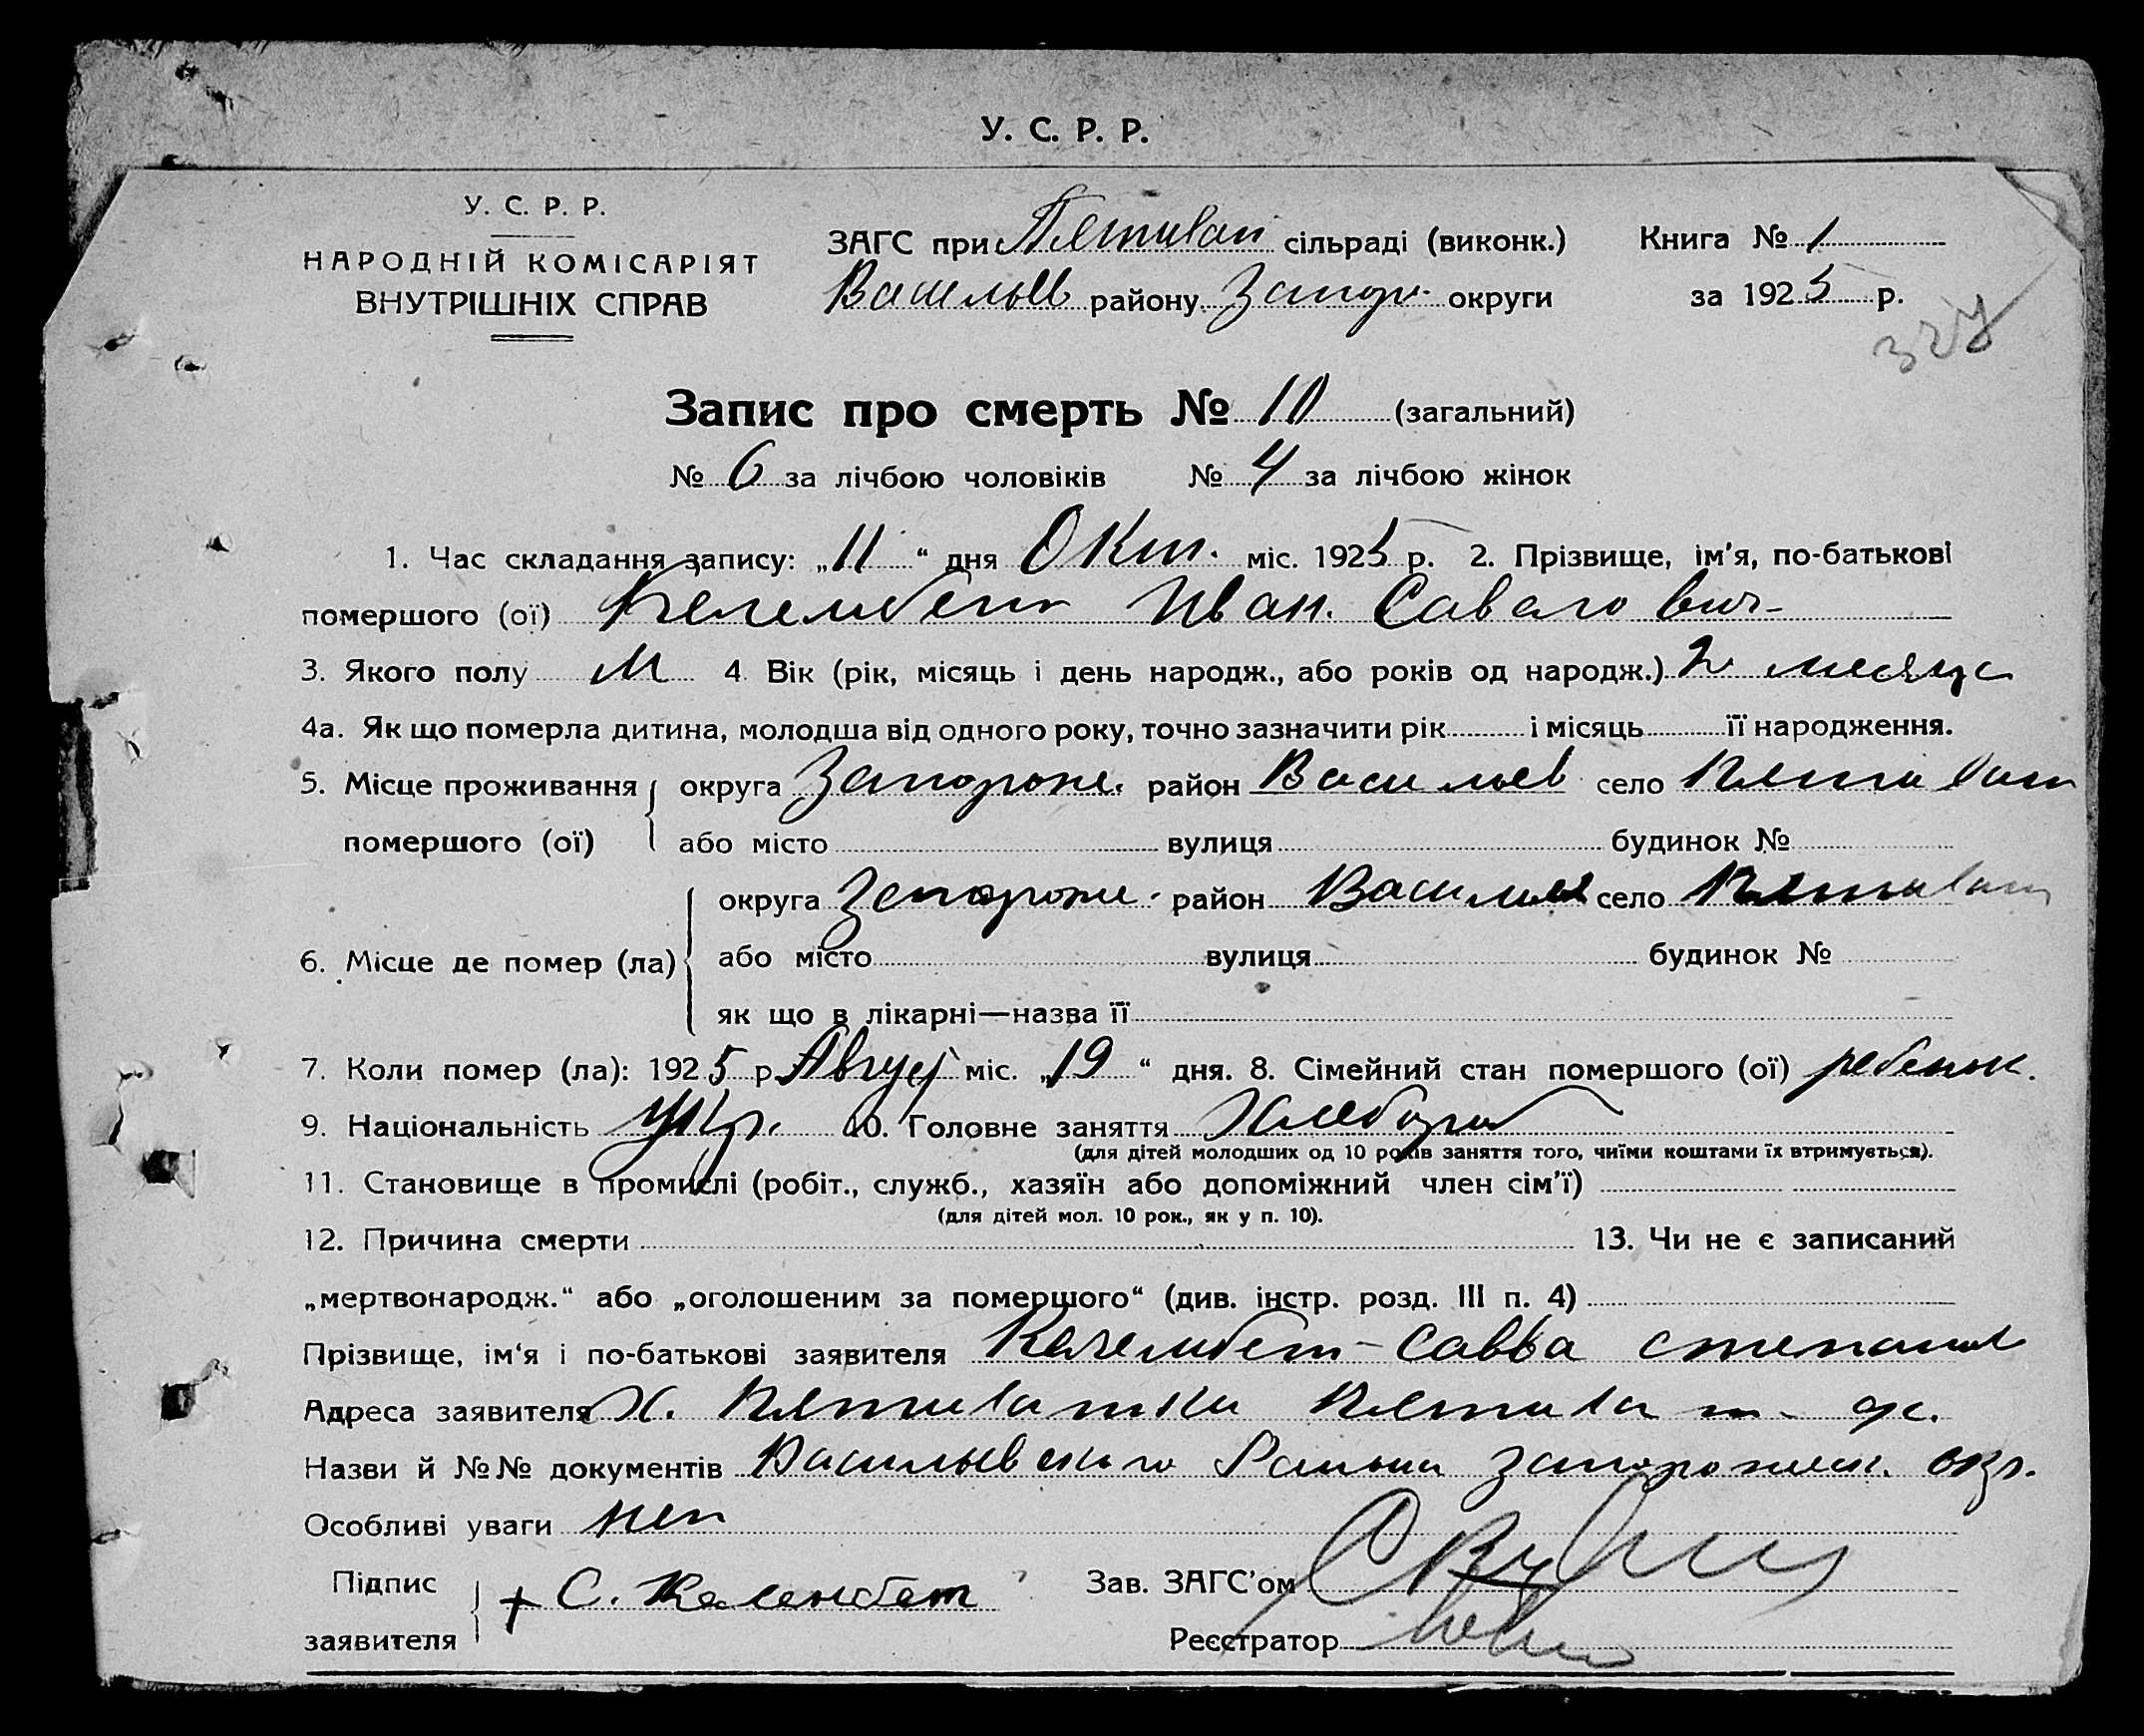 У. С. Р. Р.
У. С. Р. Р.
НАРОДНІЙ КОМІСАРІЯТ
ВНУТРІШНІХ СПРАВ
ЗАГС при Пятихат сільраді (виконк.)
Васильев району Запор. округи
Книга № 1
за 1925 р.
327
Запис про смерть № 10 (загальний)
№ 6 за лічбою чоловіків № 4 за лічбою жінок
1. Час складання запису: „11“ дня Окт. міс. 1925 р. 2. Прізвище, ім'я, по-батькові
помершого (ої) Иван.
3. Якого полу М 4. Вік (рік, місяць і день народж., або років од народж.) 2 месяца
4а. Як що померла дитина, молодша від одного року, точно зазначити рік і місяць її народження.
5. Місце проживання округа Запорож. район Васильев село Пятихат
помершого (ої) або місто вулиця будинок №
округа Запорож. район Васильев село Пятихат
6. Місце де помер (ла) або місто вулиця будинок №
як що в лікарні—назва її
7. Коли помер (ла): 1925 р. Август міс. „19“ дня. 8. Сімейний стан помершого (ої) ребенок.
9. Національність Укр. 10. Головне заняття Хлебороб
(для дітей молодших од 10 років заняття того, чиїми коштами їх втримується).
11. Становище в промислі (робіт., служб., хазяїн або допоміжний член сім'ї)
(для дітей мол. 10 рок., як у п. 10).
12. Причина смерти 13. Чи не є записаний
„мертвонародж.“ або „оголошеним за помершого“ (див. інстр. розд. III п. 4)
Прізвище, ім'я і по-батькові заявителя Савва Степанов
Адреса заявителя Х. Пятихатки Пятихат
Назви й №№ документів Васильевского Района Запорожск. окр.
Особливі уваги нет
Підпис + С. Келембет Зав. ЗАГС'ом
заявителя Реєстратор